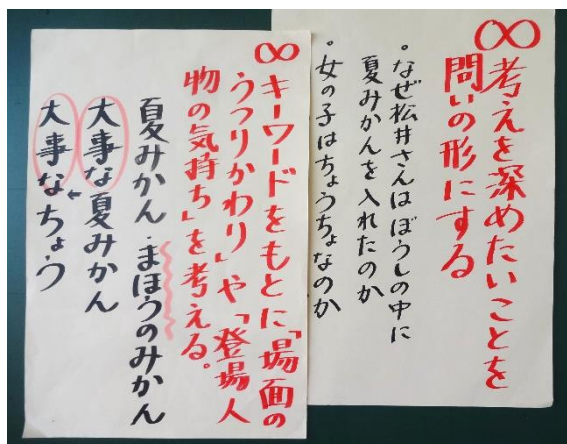 ∞考えを深めたいことを
問いの形にする
・なぜ松井さんはぼうしの中に
夏みかんを入れたのか
・女の子はちょうちょなのか
∞キーワードをもとに「場面の
うつりかわり」や「登場人
物の気持ち」を考える。
夏みかん・まほうのみかん
大事な夏みかん
大事なちょう